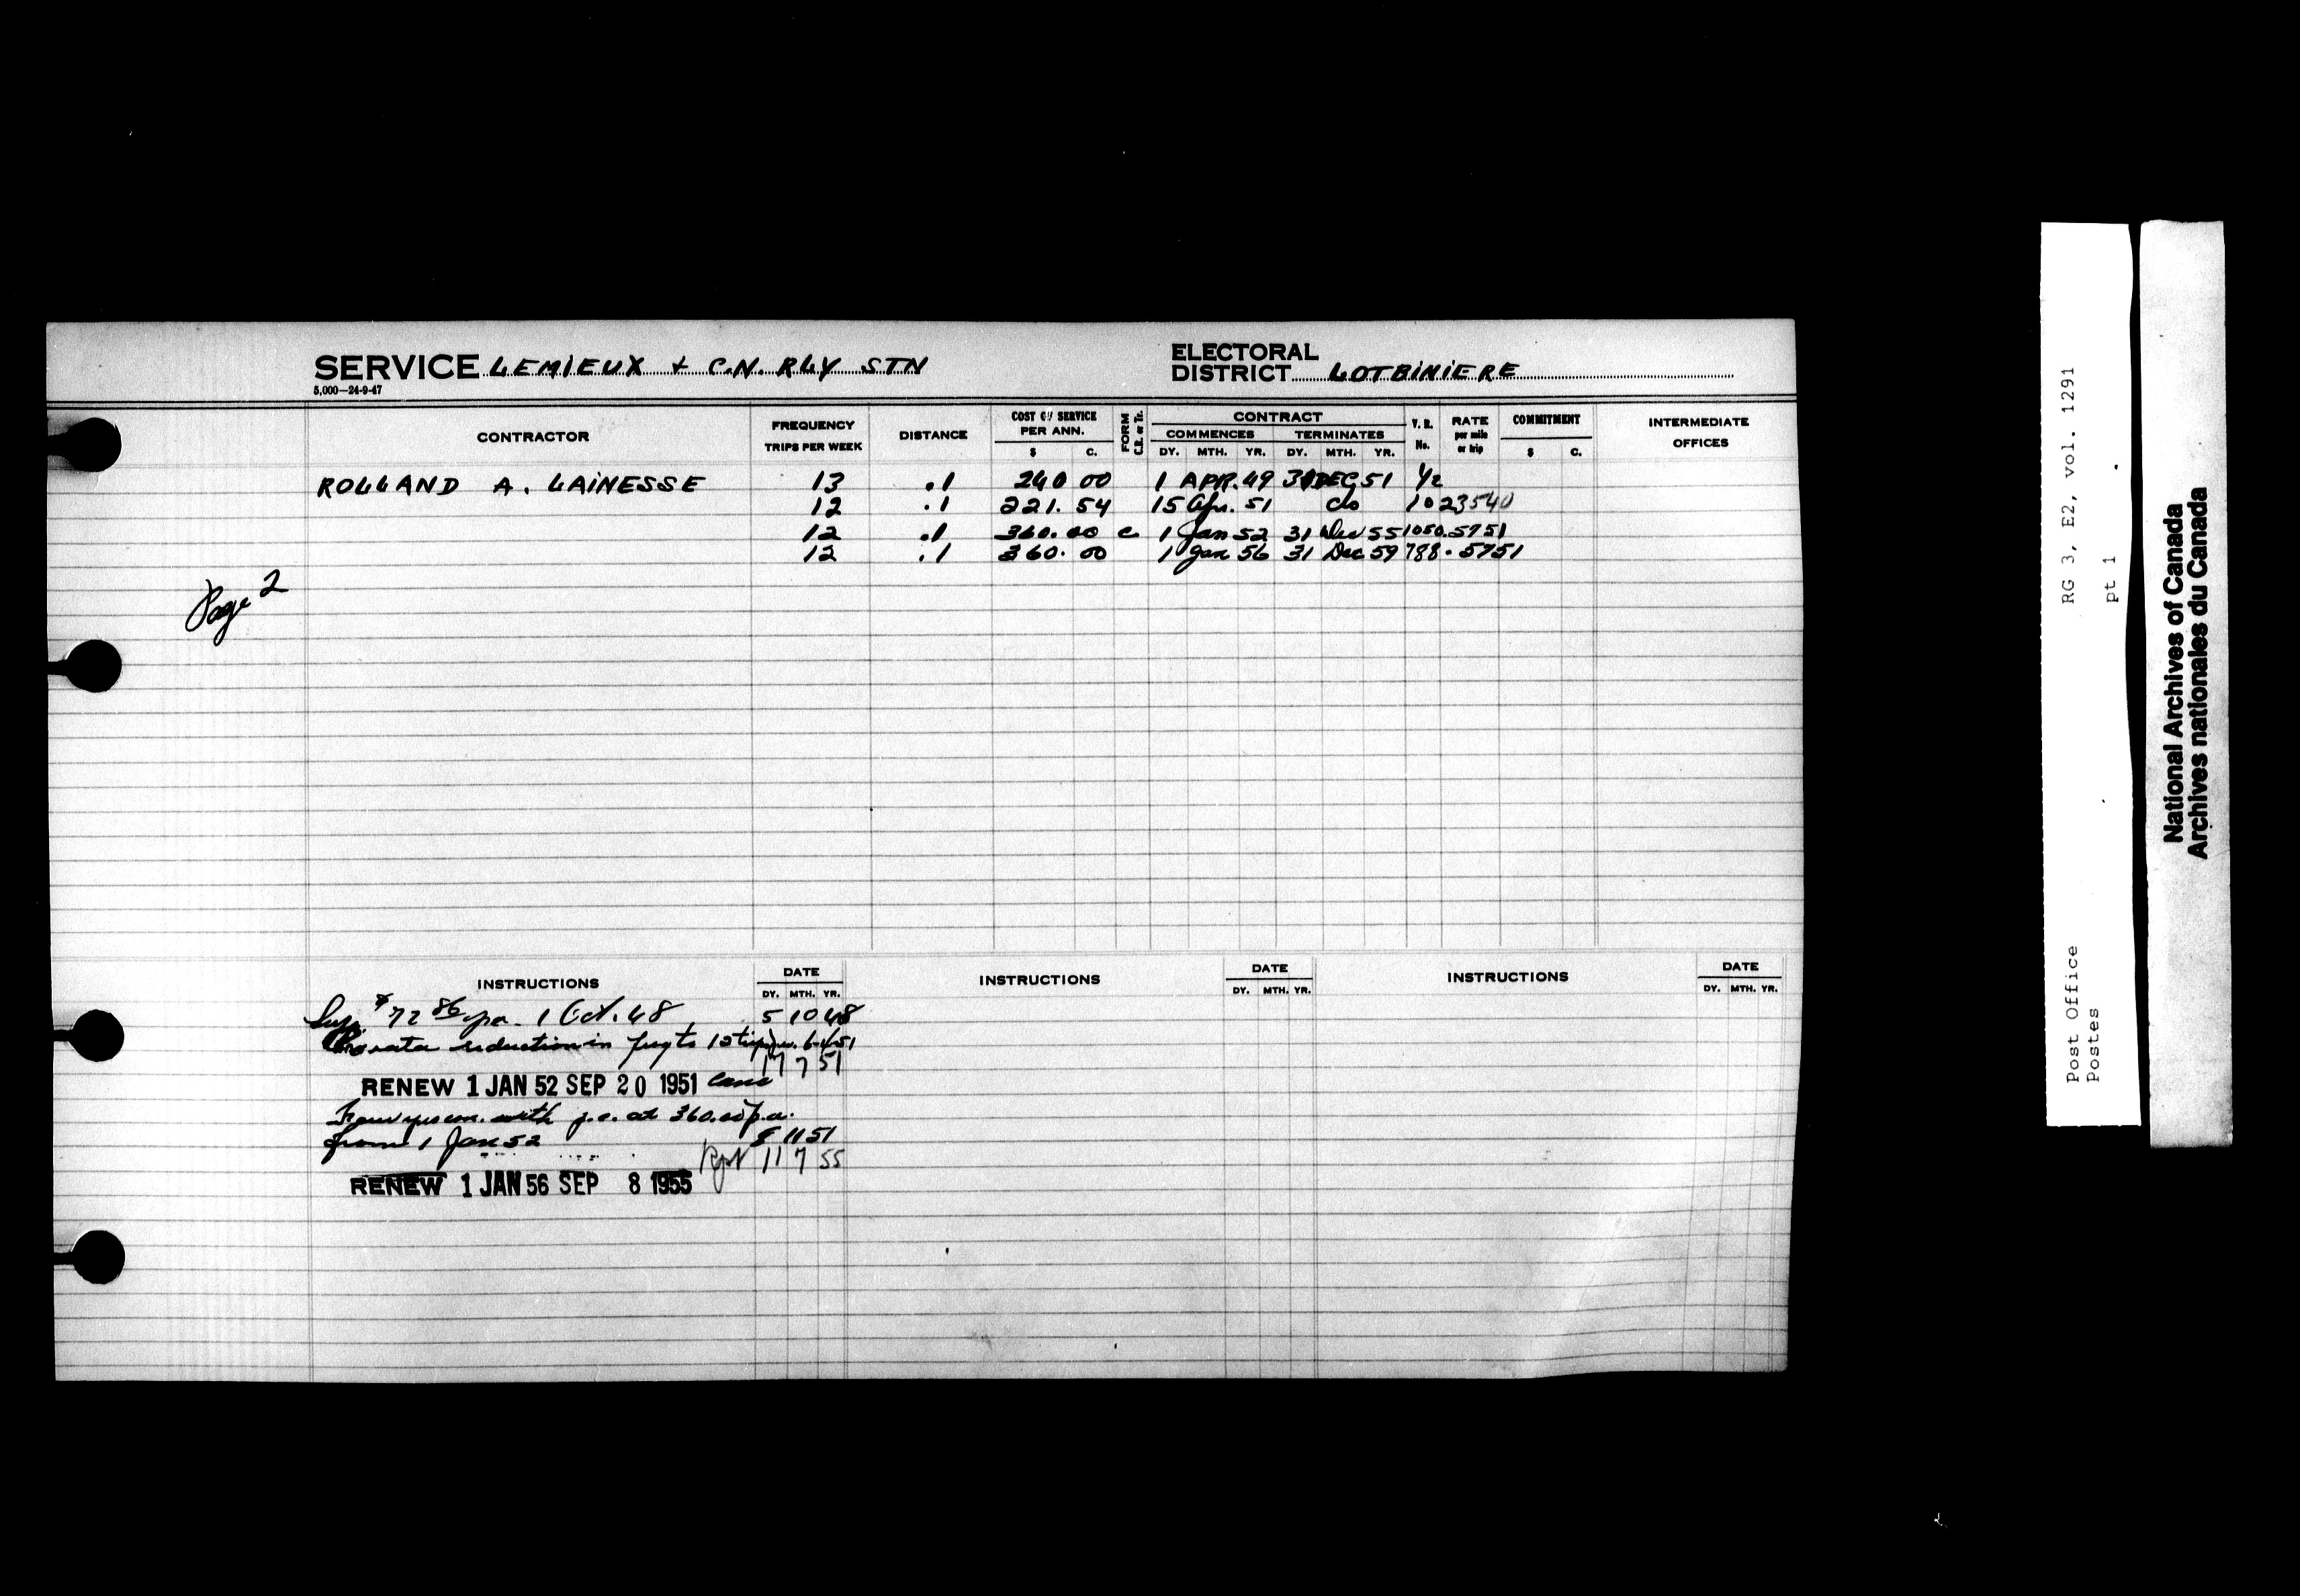 SERVICE LEMIEUX + C.N. RLY STN
ELECTORAL DISTRICT LOTBINIERE
5,000—24-9-47
CONTRACTOR FREQUENCY TRIPS PER WEEK DISTANCE COST OF SERVICE PER ANN. $ C. FORM C.B. or Tr. CONTRACT COMMENCES DY. MTH. YR. TERMINATES DY. MTH. YR. V. R. No. RATE per mile or trip COMMITMENT $ C. INTERMEDIATE OFFICES
ROLLAND A. LAINESSE 13 .1 240 00 1 APR. 49 31 DEC 51 1/2
12 .1 221. 54 15 Apr. 51 do 10 23540
12 .1 360. 00 c 1 Jan 52 31 Dec 55 1050 .5751
12 .1 360. 00 1 Jan 56 31 Dec 59 788 .5751
Page 2
INSTRUCTIONS DATE DY. MTH. YR. INSTRUCTIONS DATE DY. MTH. YR. INSTRUCTIONS DATE DY. MTH. YR.
$72 86 pa. 1 Oct. 48 5 10 48
Pro rata reduction in 12 6-4-51
17 7 51
RENEW 1 JAN 52 SEP 20 1951
with p.c. at 360.00 p.a.
from 1 Jan 52 8 11 51
Rpt 11 7 55
RENEW 1 JAN 56 SEP 8 1955
RG 3, E2, vol. 1291
pt 1
Post Office
Postes
National Archives of Canada
Archives nationales du Canada